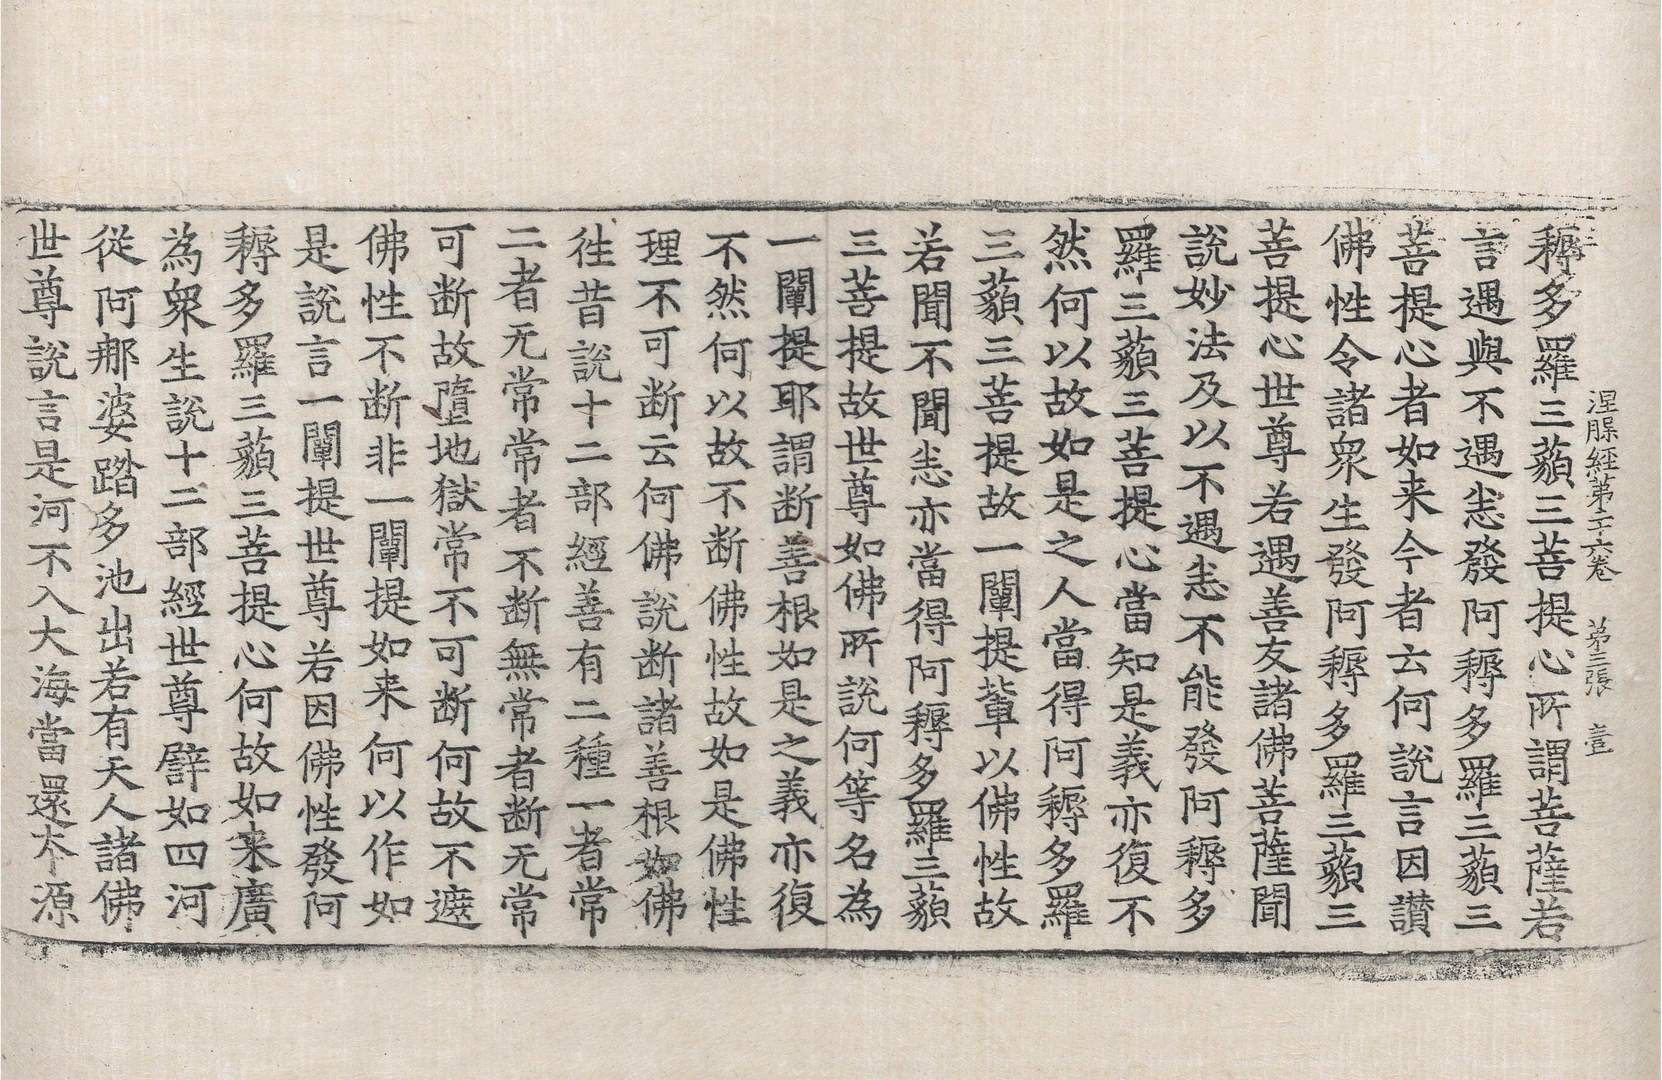 涅槃經第二十六卷　第三張　壹
耨多羅三藐三菩提心所謂菩薩若
言遇與不遇悉發阿耨多羅三藐三
菩提心者如来今者云何說言因讃
佛性令諸衆生發阿耨多羅三藐三
菩提心世尊若遇善友諸佛菩薩聞
說妙法及以不遇悉不能發阿耨多
羅三藐三菩提心當知是義亦復不
然何以故如是之人當得阿耨多羅
三藐三菩提故一闡提軰以佛性故
若聞不聞悉亦當得阿耨多羅三藐
三菩提故世尊如佛所說何等名為
一闡提耶謂断善根如是之義亦復
不然何以故不断佛性故如是佛性
理不可断云何佛說断諸善根如佛
徃昔說十二部經善有二種一者常
二者无常常者不断無常者断无常
可断故墮地獄常不可断何故不遮
佛性不断非一闡提如来何以作如
是說言一闡提世尊若因佛性發阿
耨多羅三藐三菩提心何故如来廣
為衆生說十二部經世尊譬如四河
從阿那婆踏多池出若有天人諸佛
世尊說言是河不入大海當還本源